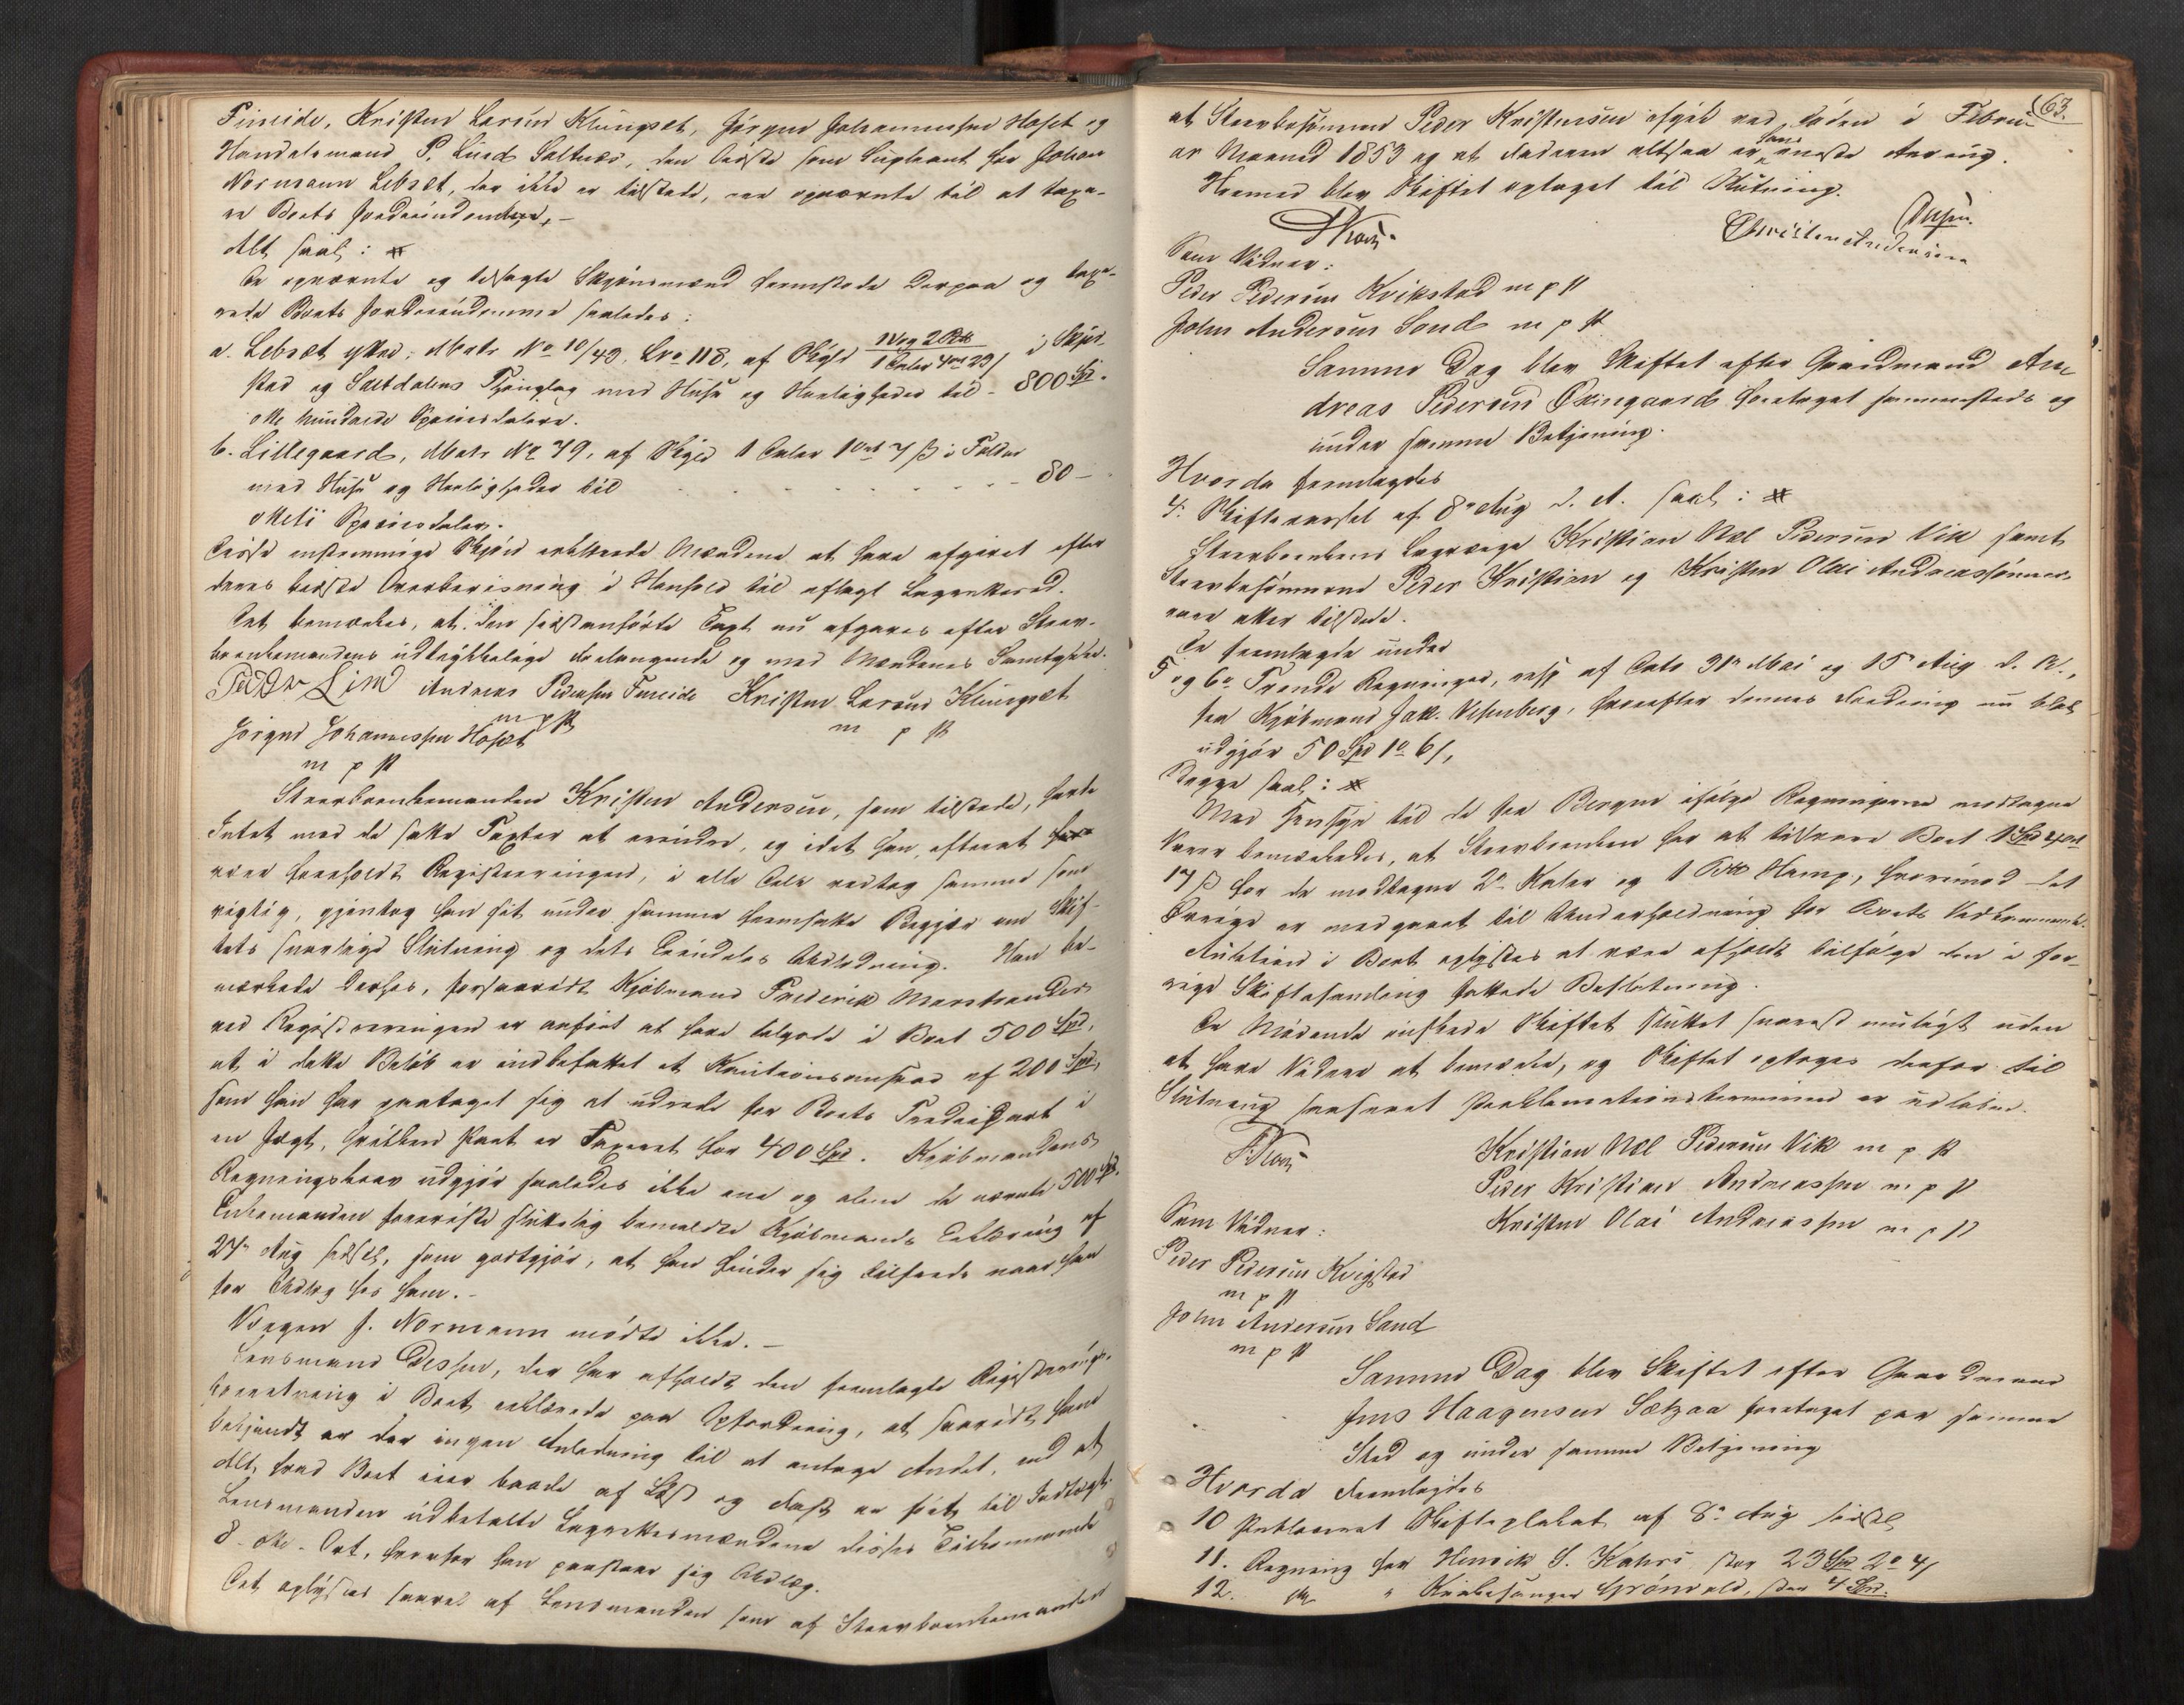 Fineide, Kristen Larsen Klungset, Jörgen Johannessen Hoset og
Handelsmand P. Lund Saltnes, den Sidste som Supleant for Johan
Normann Lebset, der ikke er tilstede, ere opnævnte til at taxe-
re Boets Jordeiendomme, –
Alt saal:
De opnævnte og tilsagte Skjönsmænd fremstode derpaa og taxe-
rede Boets Jordeiendomme saaledes:
a. Lebset ytre, Matr No 10/43. Lno 118, af Skyld i Skjer-
stad og Saltdalens Thinglag med Huse og Herligheder til – 800 Spd.
otte hundrede Speciesdalere.
b. Lillegaard, Matr No 79, af Skyld 1 Daler 1 ort 7 ß i Folden
med Huse og Herligheder til – 80 –
otteti Speciesdaler.
Disse enstemmige Skjön erklærede Mændene at have afgivet efter
deres bedste Overbevisning i Henhold til aflagt Lagrettesed.
Det bemærkes, at den sidstanförte Taxt nu afgaves efter Sterv-
boenkemandens udtrykkelige Forlangende og med Mændenes Samtykke.
Peder Lund Andreas Pedersen Fineide Kristen Larsen Klungset
m p p m p p
Jörgen Johannessen Hoset
m p p
Stervboenkemanden Kristen Andersen, som tilstede, havde
Intet mod de satte Taxter at erindre, og idet han, efterat
være foreholdt Registreringen, i alle Dele vedtog samme som
rigtig, gjentog han sit under samme fremsatte Begjær om Skif-
tets snarlige Slutning og dets Eiendeles Udlodning. Han be-
mærkede derhos, forsaavidt Kjöbmand Frederik Marstrander
ved Registreringen er anfört at have tilgode i Boet 500 Spd,
at i dette Belöb er indbefattet et Kautionsansvar af 200 Spd,
som han har paataget sig at udrede for Boets Trediepart i
en Jægt, hvilken Part er Taxeret for 400 Spd. Kjöbmandens
Regningskrav udgjör saaledes ikke ene og alene de nævnte 500 Spd.
Enkemanden foreviste skriftlig bemeldte Kjöbmands Erklæring af
24de Aug sidstl, som godtgjör, at han finder sig tilfreds naar han
faar Udlæg hos ham. –
Værgen J. Normann mödte ikke. –
Lensmand Dessen, der har afholdt den fremlagte Registrerings-
forretning i Boet, erklærede paa Opfordring, at saavidt ham
bekjendt er der ingen Anledning til at antage Andet, end at
Alt, hvad Boet eier baade af Löst og Fast er sat til Indtægt.
Lensmanden udbetalte Lagrettesmændene disses Tilkommende
8 – otte – Ort, hvorfor han paastaar sig Udlæg.
Det oplystes saavel af Lensmanden som af Stervboenkemanden
63.
at Stervbosönnen Peder Kristensen afgik ved Döden i Febru-
ar Maaned 1853 og at Faderen altsaa er hans eneste Arving.
Hermed blev Skiftet optaget til Slutning.
Dessen.
Christen Andersen
Som Vidner:
Peder Pedersen Kvikstad m p p
John Andersen Sand m p p
Samme Dag blev Skiftet efter Gaardmand An-
dreas Pedersen Öxengaard foretaget sammesteds og
under samme Betjening.
Hvorda fremlagdes
4. Skiftevarsel af 8de Aug d. A. saal:
Stervboenkens Lagværge Kristian Nel Pedersen Vik samt
Stervbosönnerne Peder Kristian og Kristen Olai Andreassönner
vare atter tilstede.
De fremlagde under
5 og 6te Trende Regninger, resp af Dato 31te Mai og 15de Aug d. A.,
fra Kjöbmand Jak. Wesenberg, hvorefter dennes Fordring nu blot
udgjör 50 Spd 1o 6ß,
Begge saal:
Med Hensyn til de fra Bergen ifölge Regningerne modtagne
Varer bemærkedes, at Stervboenken har at tilsvare Boet 1 Spd 4 ort
17 ß for de modtagne 2de Kaler og 1 Bll Hamp, hvorimod det
Övrige er medgaaet til Underholdning for Boets Vedkommende.
Auktion i Boet oplystes at være afholdt tilfölge den i for-
rige Skiftesamling fattede Beslutning.
De Mödende önskede Skiftet sluttet snarest muligt uden
at have Videre at bemærke, og Skiftet optoges derfor til
Slutning saasnart Proklamationsterminen er udlöben.
Kristian Nel Pedersen Vik m p p
Peder Kristian Andreassen m p p
Kristen Olai Andreassen m p p
Som Vidner:
Peder Pedersen Kvigstad
m p p
John Andersen Sand
m p p
Samme Dag blev Skiftet efter Gaardmand
Jens Haagensen Sætraa foretaget paa samme
Sted og under samme Betjening
Hvorda fremlagdes
10 Publiceret Skifteplakat af 8de Aug sidstl
11. Regning fra Henrik S. Kahrs stor 23 Spd 2o 4ß
12. do " Kirkesanger Grönvold, stor 4 Spd.